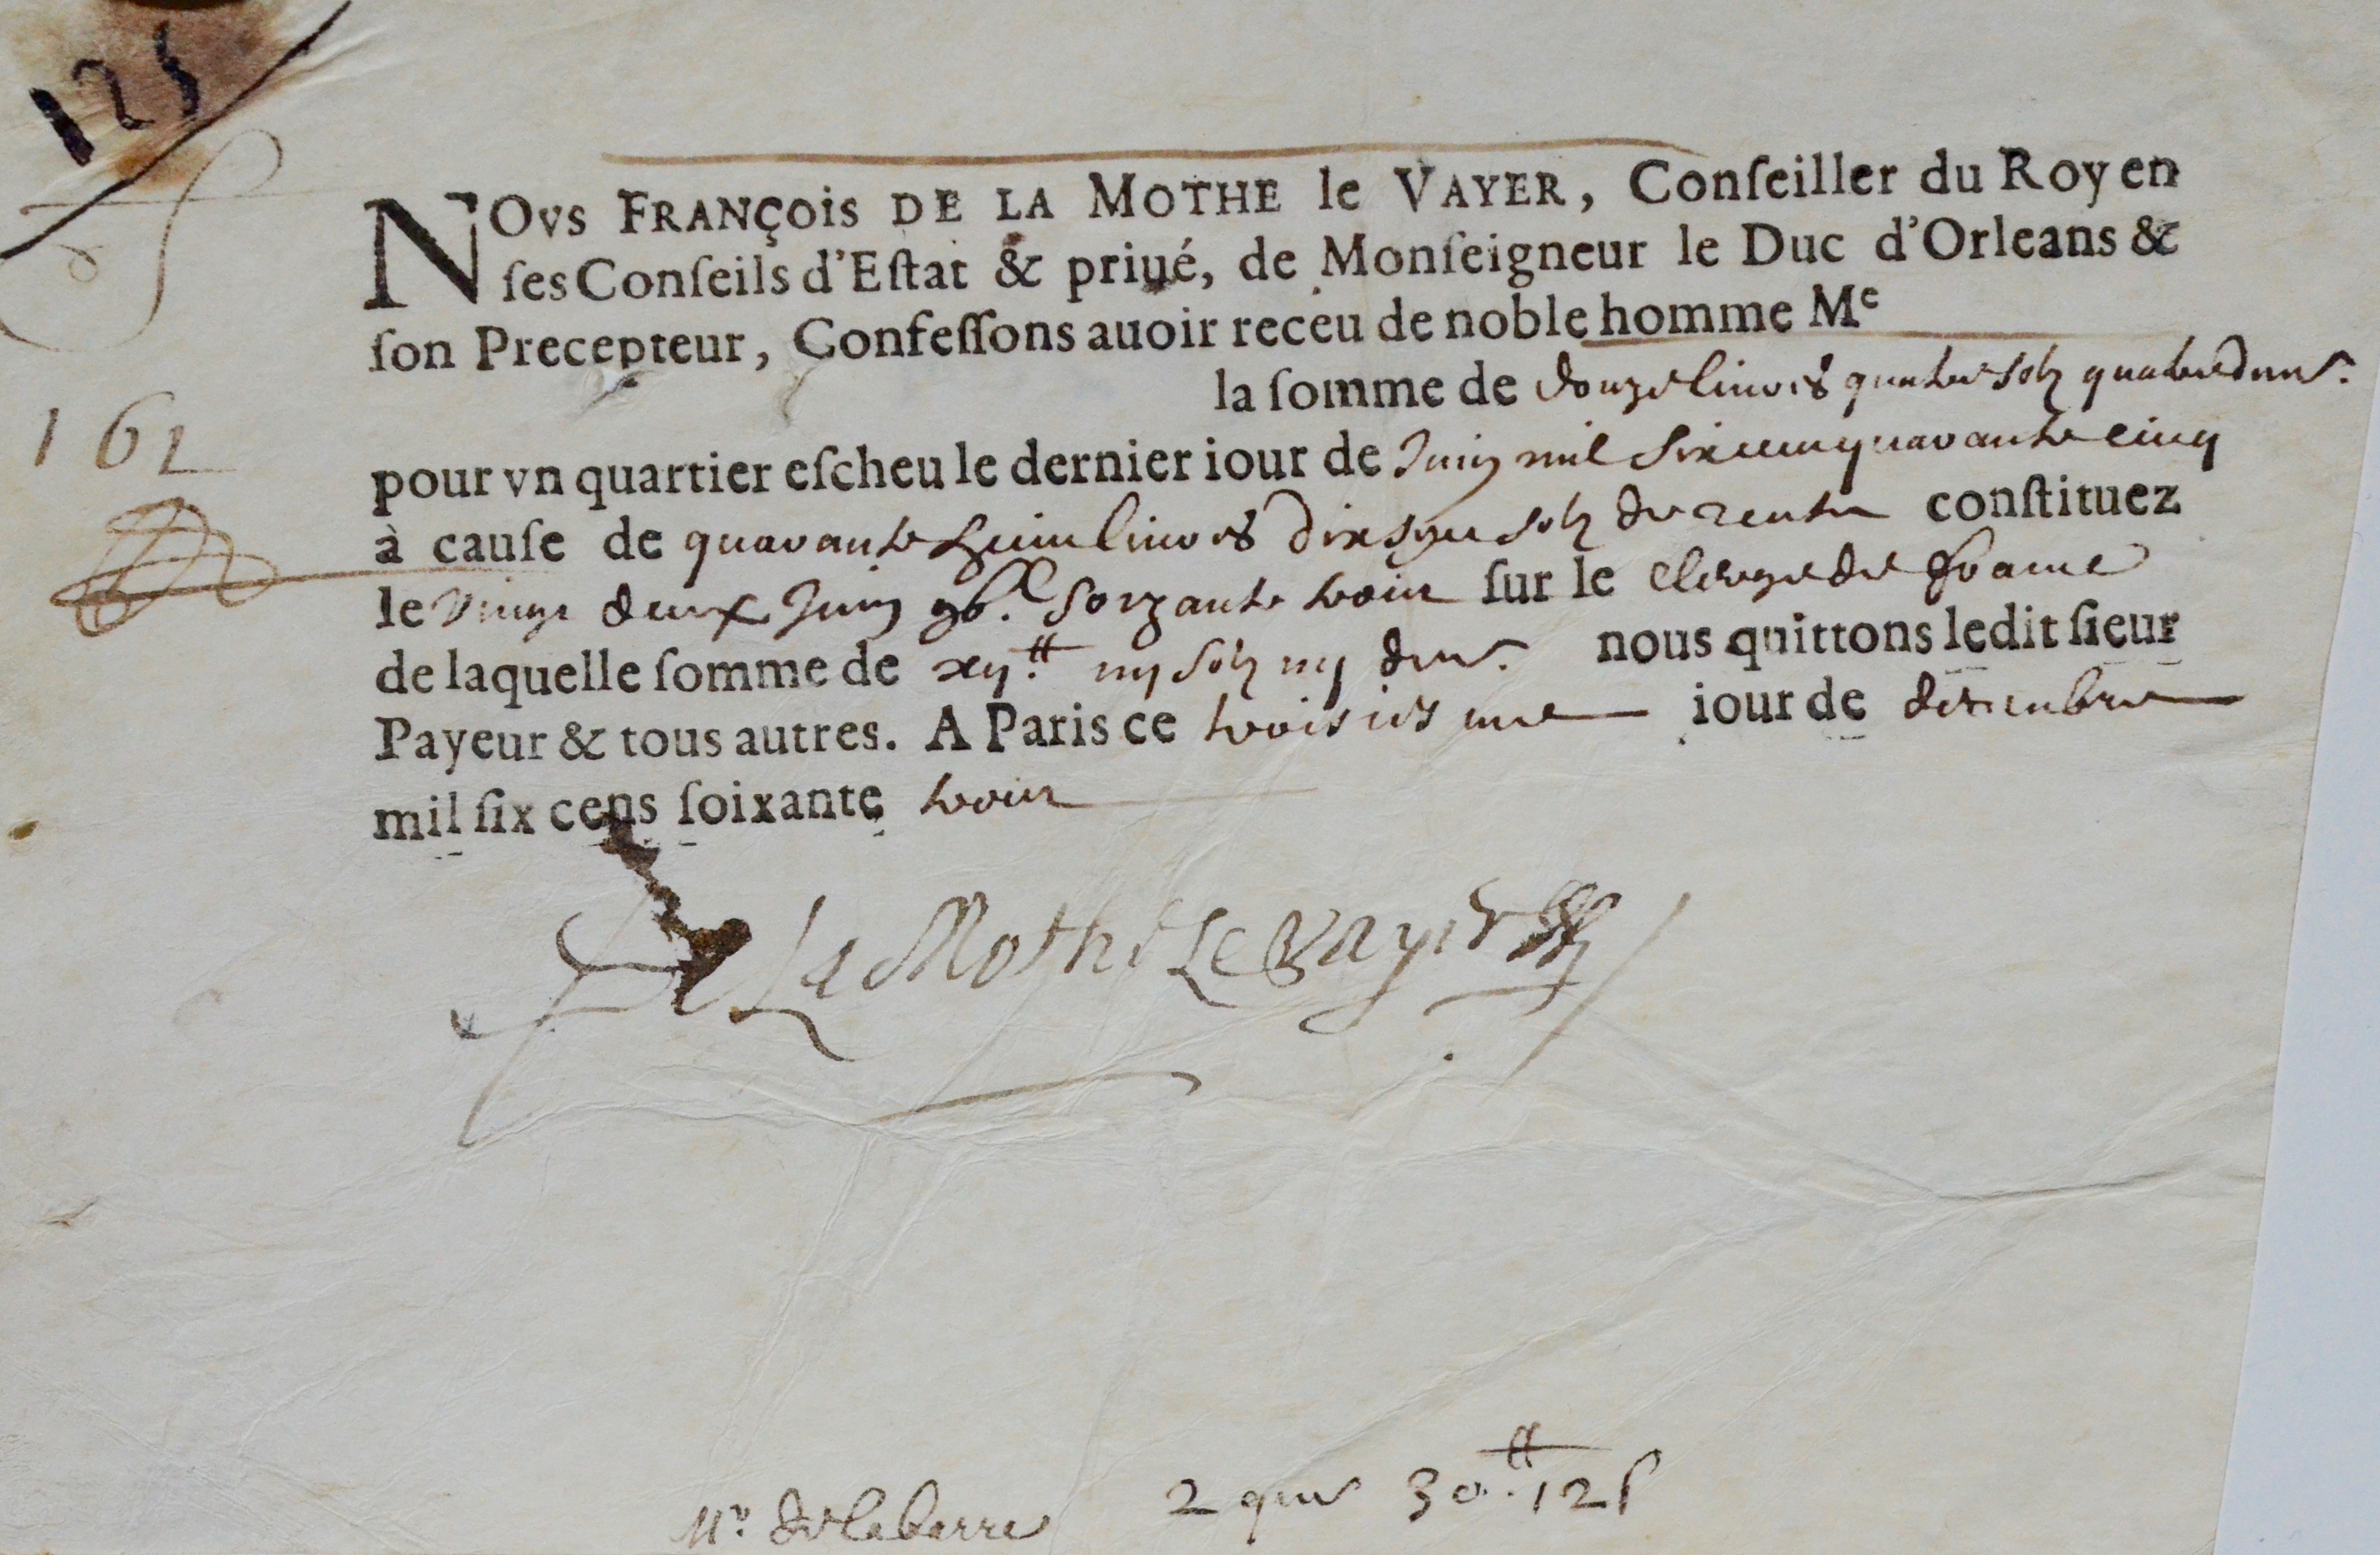 125
NOvs FRANÇois DE LA MOTHE le VAYER, Conſeiller du Roy en
ſes Conſeils d'Eſtat & priué, de Monſeigneur le Duc d'Orleans &
ſon Precepteur, Confeſſons auoir receu de noble homme Me
la ſomme de douze liures quatre solz quatre den.
162
pour vn quartier eſcheu le dernier iour de Juin mil six cens quarante cinq
à cauſe de quarante huict liures dix sept solz de rente conſtituez
le vingt deux Juin soixante trois ſur le clergé de france
de laquelle ſomme de xij.tt iiij solz iiij den. nous quittons ledit ſieur
Payeur & tous autres. A Paris ce troisiesme iour de decembre
mil ſix cens ſoixante trois
De La Mothe Le Vayer
Mr Delabarre 2 quar 30.tt 12 s